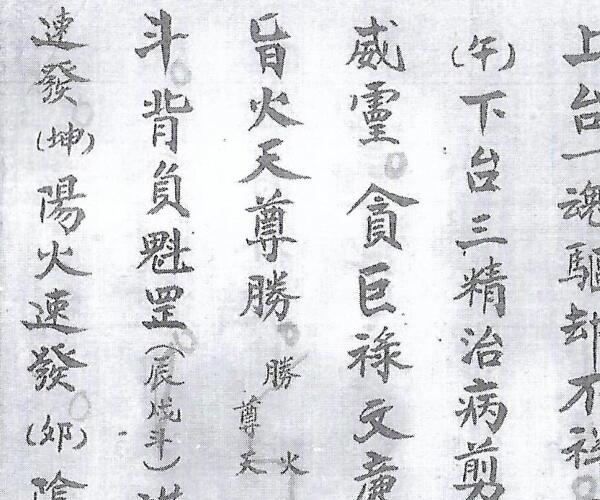 上台一魂驅却不祥
(午)下台三精治病剪
威靈貪巨祿文廉
旨火天尊勝
勝
尊
天火
斗背負魁罡(辰燒斗)
速發(坤)陽火速發(卯)陰